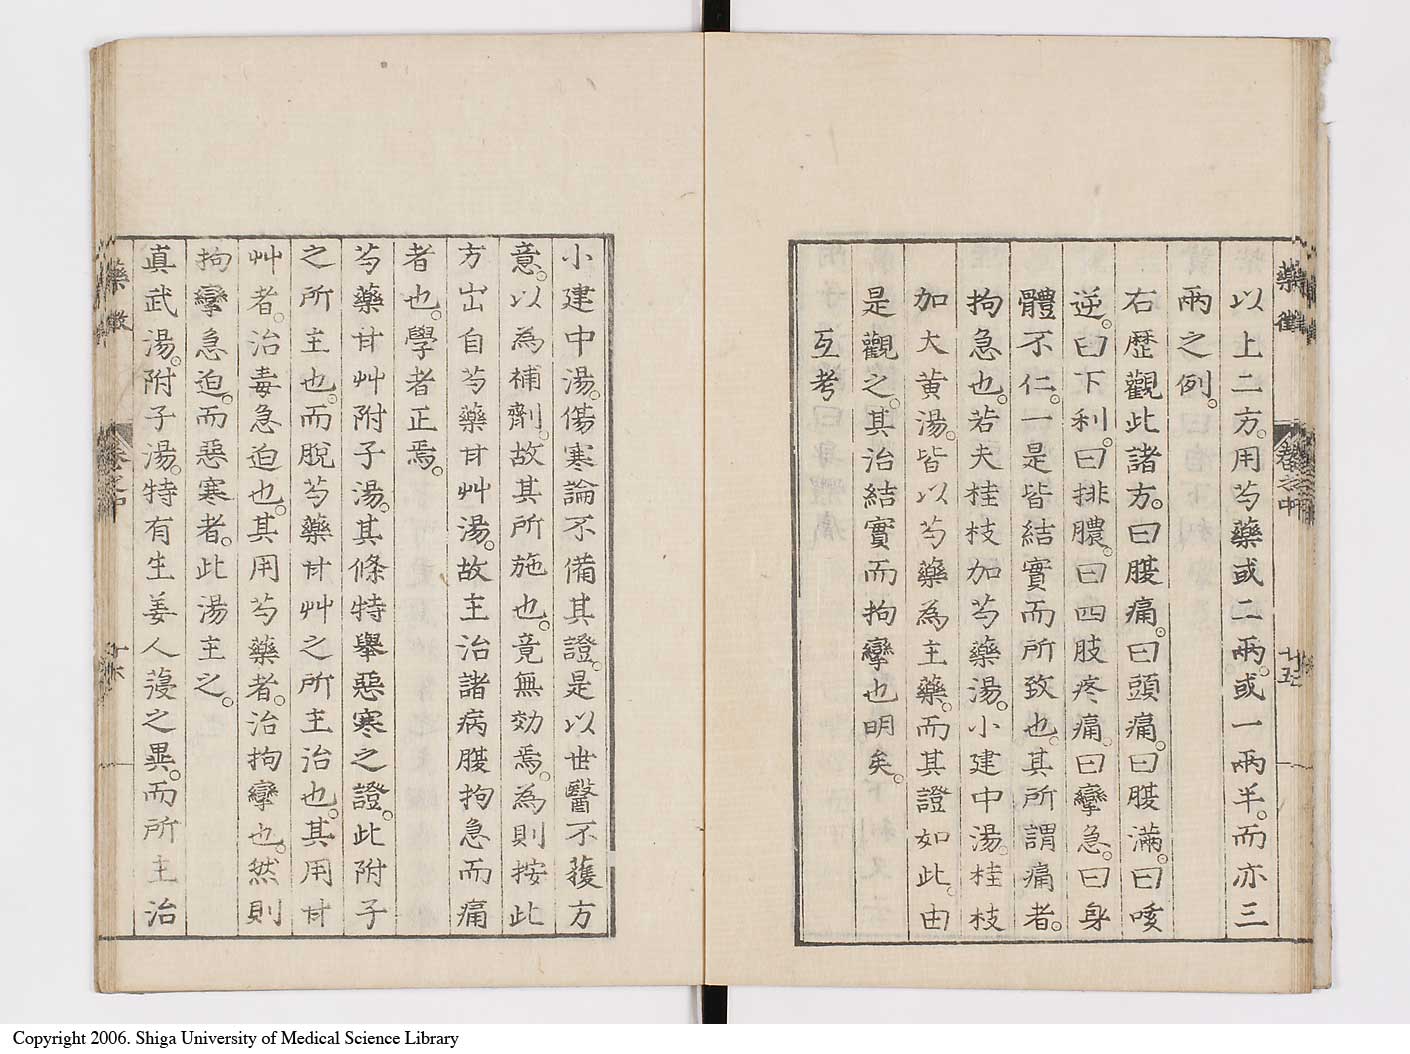 藥徵
卷之中
十五
以上二方。用芍藥或二兩。或一兩半。而亦三
兩之例。
右歷觀此諸方。曰腹痛。曰頭痛。曰腹滿。曰咳
逆。曰下利。曰排膿。曰四肢疼痛。曰攣急。曰身
體不仁。一是皆結實而所致也。其所謂痛者。
拘急也。若夫桂枝加芍藥湯。小建中湯。桂枝
加大黄湯。皆以芍藥為主藥。而其證如此。由
是觀之。其治結實而拘攣也明矣。
互考
小建中湯。傷寒論不備其證。是以世醫不蒦方
意。以為補劑。故其所施也。竟無効焉。為則按此
方岀自芍藥甘艸湯。故主治諸病腹拘急而痛
者也。學者正焉。
芍藥甘艸附子湯。其條特舉惡寒之證。此附子
之所主也。而脫芍藥甘艸之所主治也。其用甘
艸者。治毒急迫也。其用芍藥者。治拘攣也。然則
拘攣急迫。而惡寒者。此湯主之。
真武湯。附子湯。特有生姜人薓之異。而所主治
藥徵
卷之中
十六
Copyright 2006. Shiga University of Medical Science Library